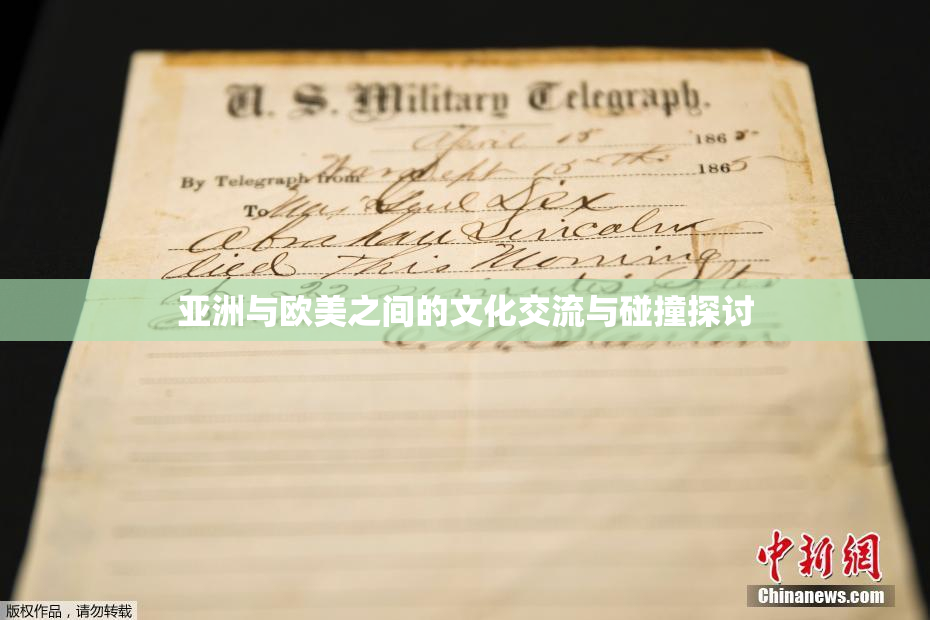 U. S. Military Telegraph.
April 15 1865
By Telegraph from War Dept 15th 1865
To Maj Genl Dix
Abraham Lincoln
died This Morning
at 22 minutes after
亚洲与欧美之间的文化交流与碰撞探讨
E. M. Stanton
中新网
Chinanews.com
版权作品，请勿转载